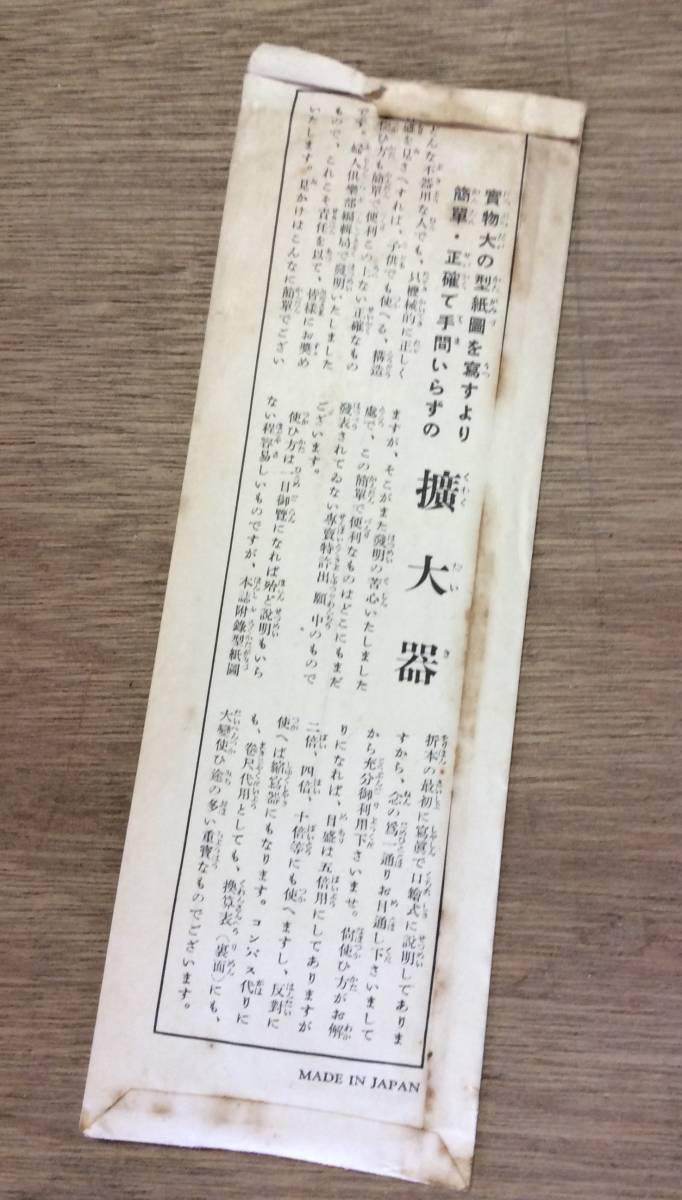 實物大の型紙圖を寫すより
簡單・正確で手間いらずの
擴大器
どんな不器用な人でも、只機械的に正しく
目盛を見さへすれば、子供でも使へる、構造
も使ひ方も簡單で便利この上ない正確なもの
です。婦人倶樂部編輯局で發明いたしました
もので、これこそ責任を以て、皆様にお奬め
いたします。見かけはこんなに簡單でござい
ますが、そこがまた發明の苦心いたしました
處で、この簡單で便利なものはどこにもまだ
發表されてゐない專賣特許出願中のもので
ございます。
使ひ方は一目御覽になれば殆ど說明もいら
ない程容易しいものですが、本誌附錄型紙圖
折本の最初に寫眞で口繪式に說明してありま
すから、念の爲一通りお目通し下さいまして
から充分御利用下さいませ。尙使ひ方がお解
りになれば、目盛は五倍用にしてありますが
二倍、四倍、十倍等にも使へますし、反對に
使へば縮寫器にもなります。コンパス代りに
も、卷尺代用としても、換算表（裏面）にも、
大變使ひ途の多い重寶なものでございます。
MADE IN JAPAN